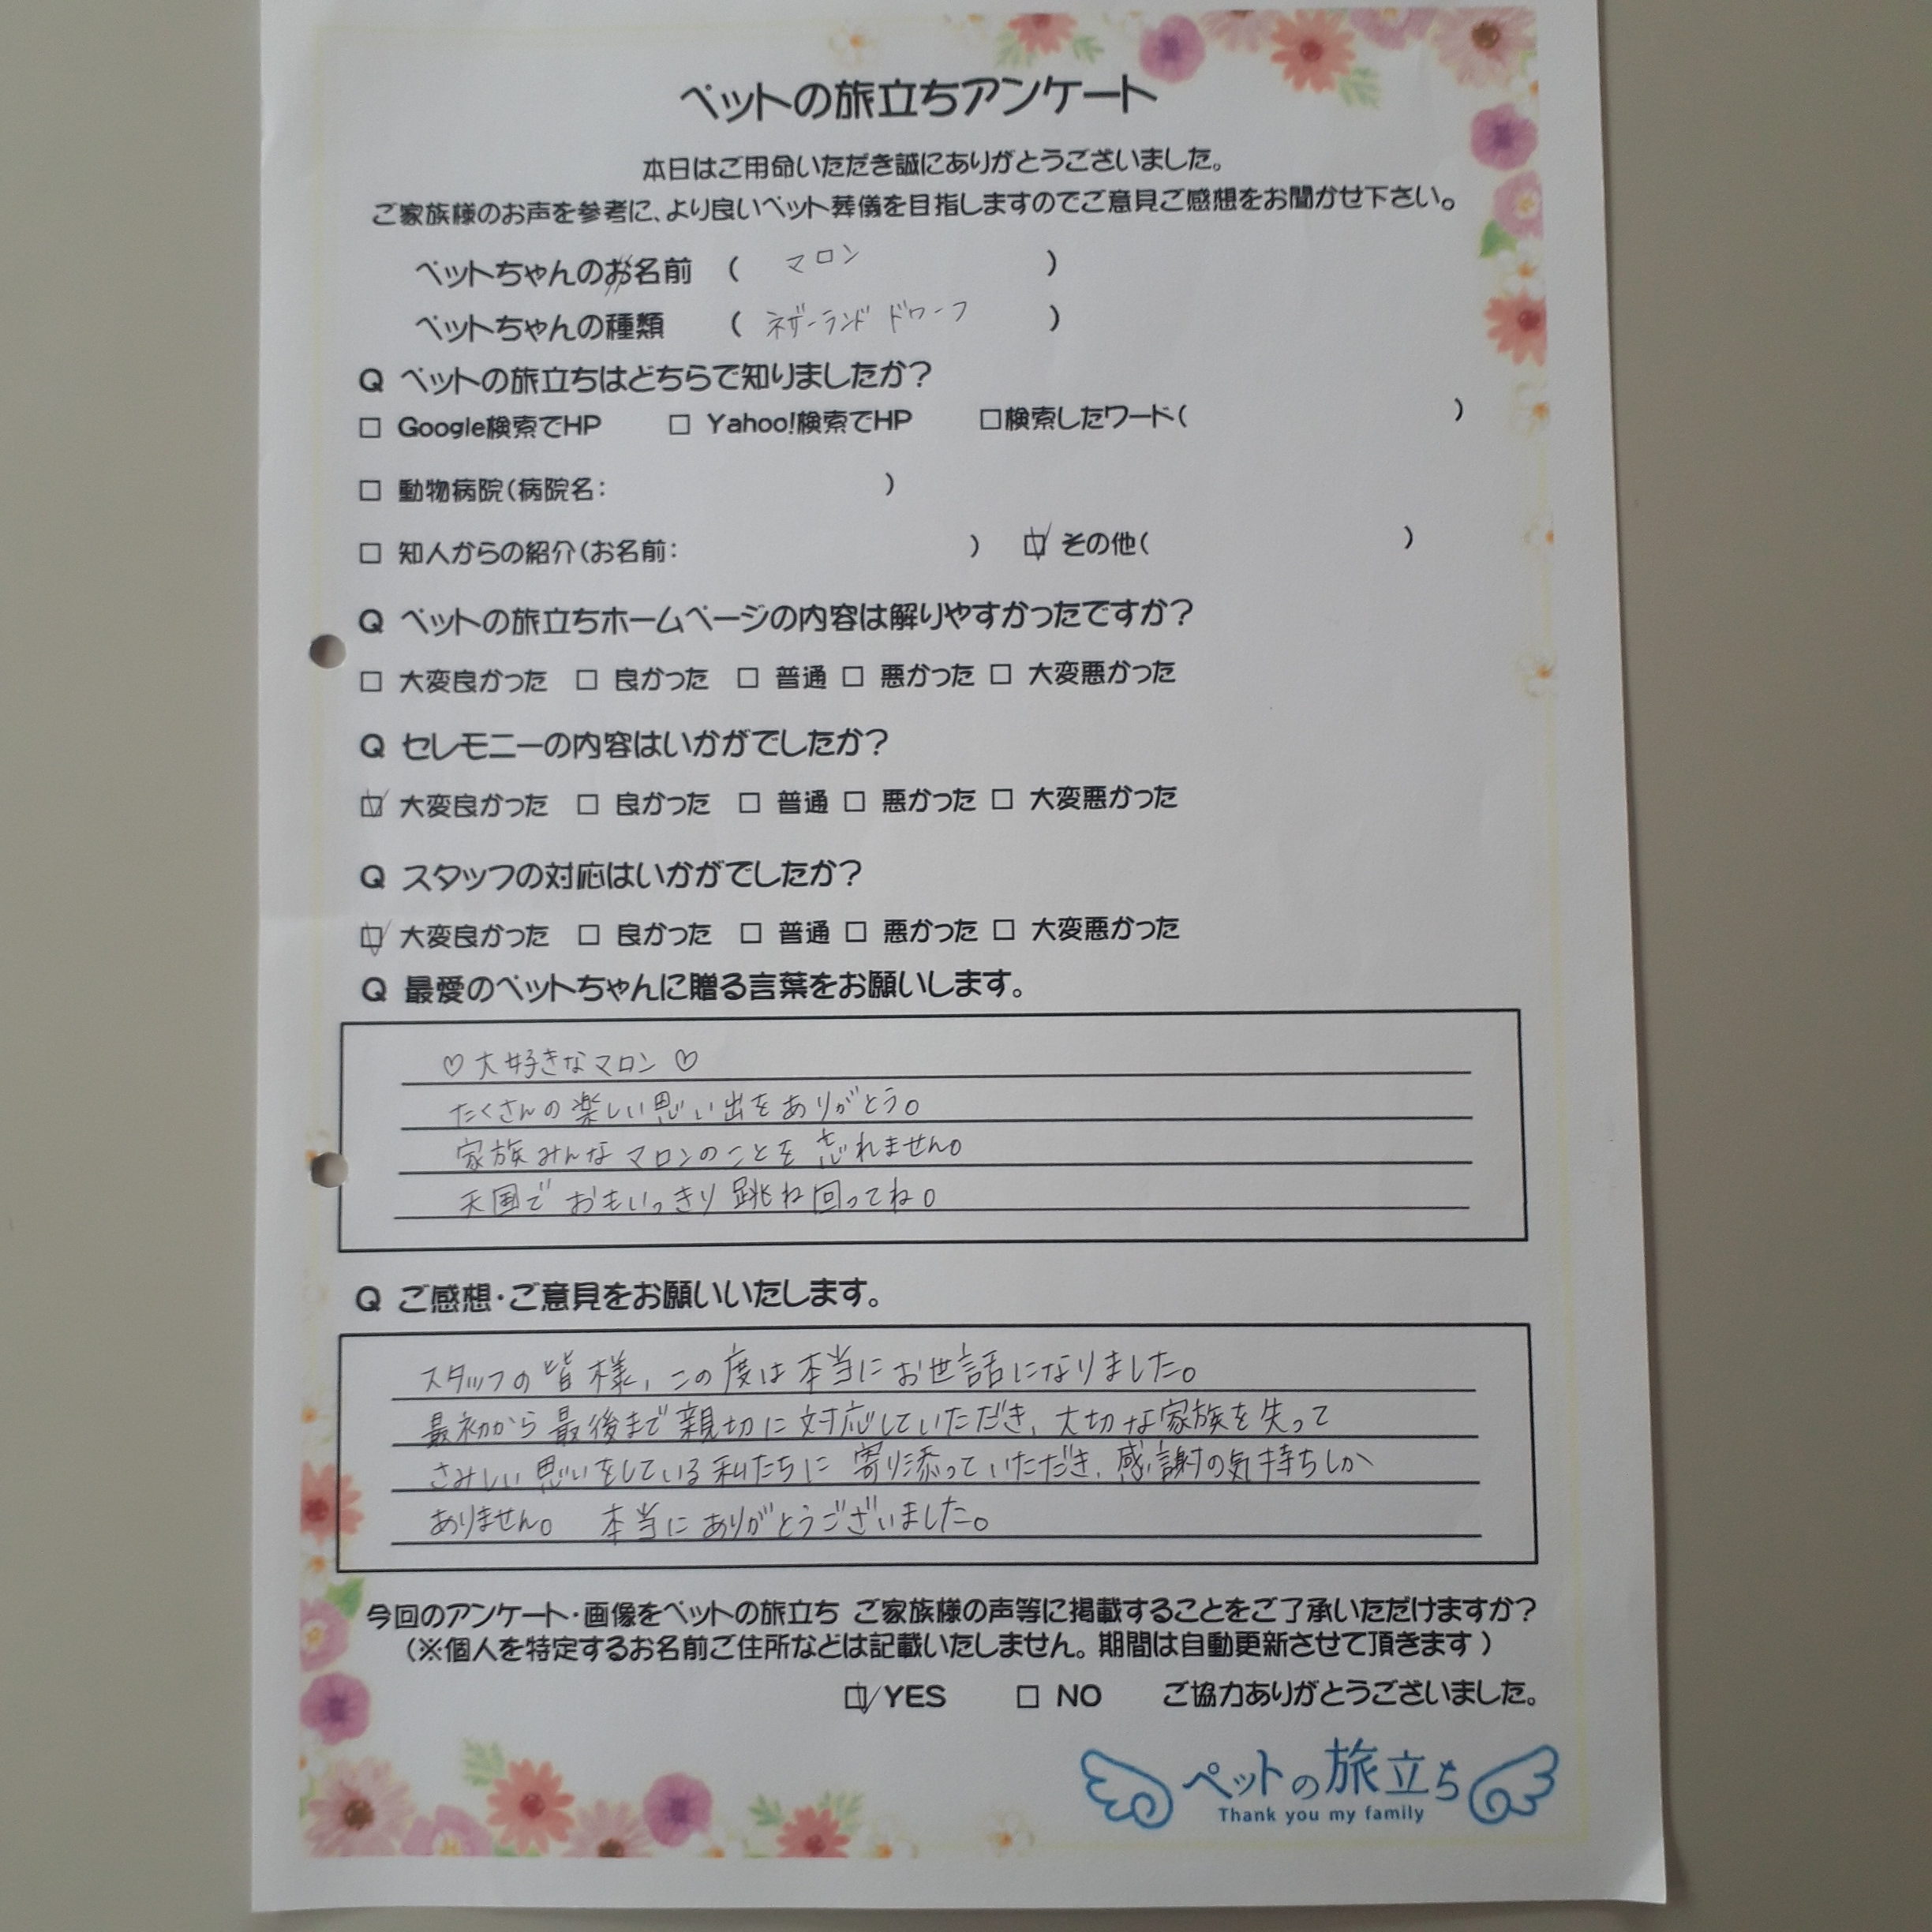 ペットの旅立ちアンケート
本日はご用命いただき誠にありがとうございました。
ご家族様のお声を参考に、より良いペット葬儀を目指しますのでご意見ご感想をお聞かせ下さい。
ペットちゃんのお名前 ( マロン )
ペットちゃんの種類 ( ネザーランド ドワーフ )
Q ペットの旅立ちはどちらで知りましたか?
□ Google検索でHP □ Yahoo!検索でHP □検索したワード( )
□ 動物病院(病院名: )
□ 知人からの紹介(お名前: ) ☑ その他( )
Q ペットの旅立ちホームページの内容は解りやすかったですか?
□ 大変良かった □ 良かった □ 普通 □ 悪かった □ 大変悪かった
Q セレモニーの内容はいかがでしたか?
☑ 大変良かった □ 良かった □ 普通 □ 悪かった □ 大変悪かった
Q スタッフの対応はいかがでしたか?
☑ 大変良かった □ 良かった □ 普通 □ 悪かった □ 大変悪かった
Q 最愛のペットちゃんに贈る言葉をお願いします。
♡大好きなマロン♡
たくさんの楽しい思い出をありがとう。
家族みんなマロンのことを忘れません。
天国でおもいっきり跳ね回ってね。
Q ご感想・ご意見をお願いいたします。
スタッフの皆様、この度は本当にお世話になりました。
最初から最後まで親切に対応していただき、大切な家族を失って
さみしい思いをしている私たちに寄り添っていただき、感謝の気持ちしか
ありません。 本当にありがとうございました。
今回のアンケート・画像をペットの旅立ち ご家族様の声等に掲載することをご了承いただけますか?
(※個人を特定するお名前ご住所などは記載いたしません。期間は自動更新させて頂きます)
☑ YES □ NO ご協力ありがとうございました。
ペットの旅立ち
Thank you my family